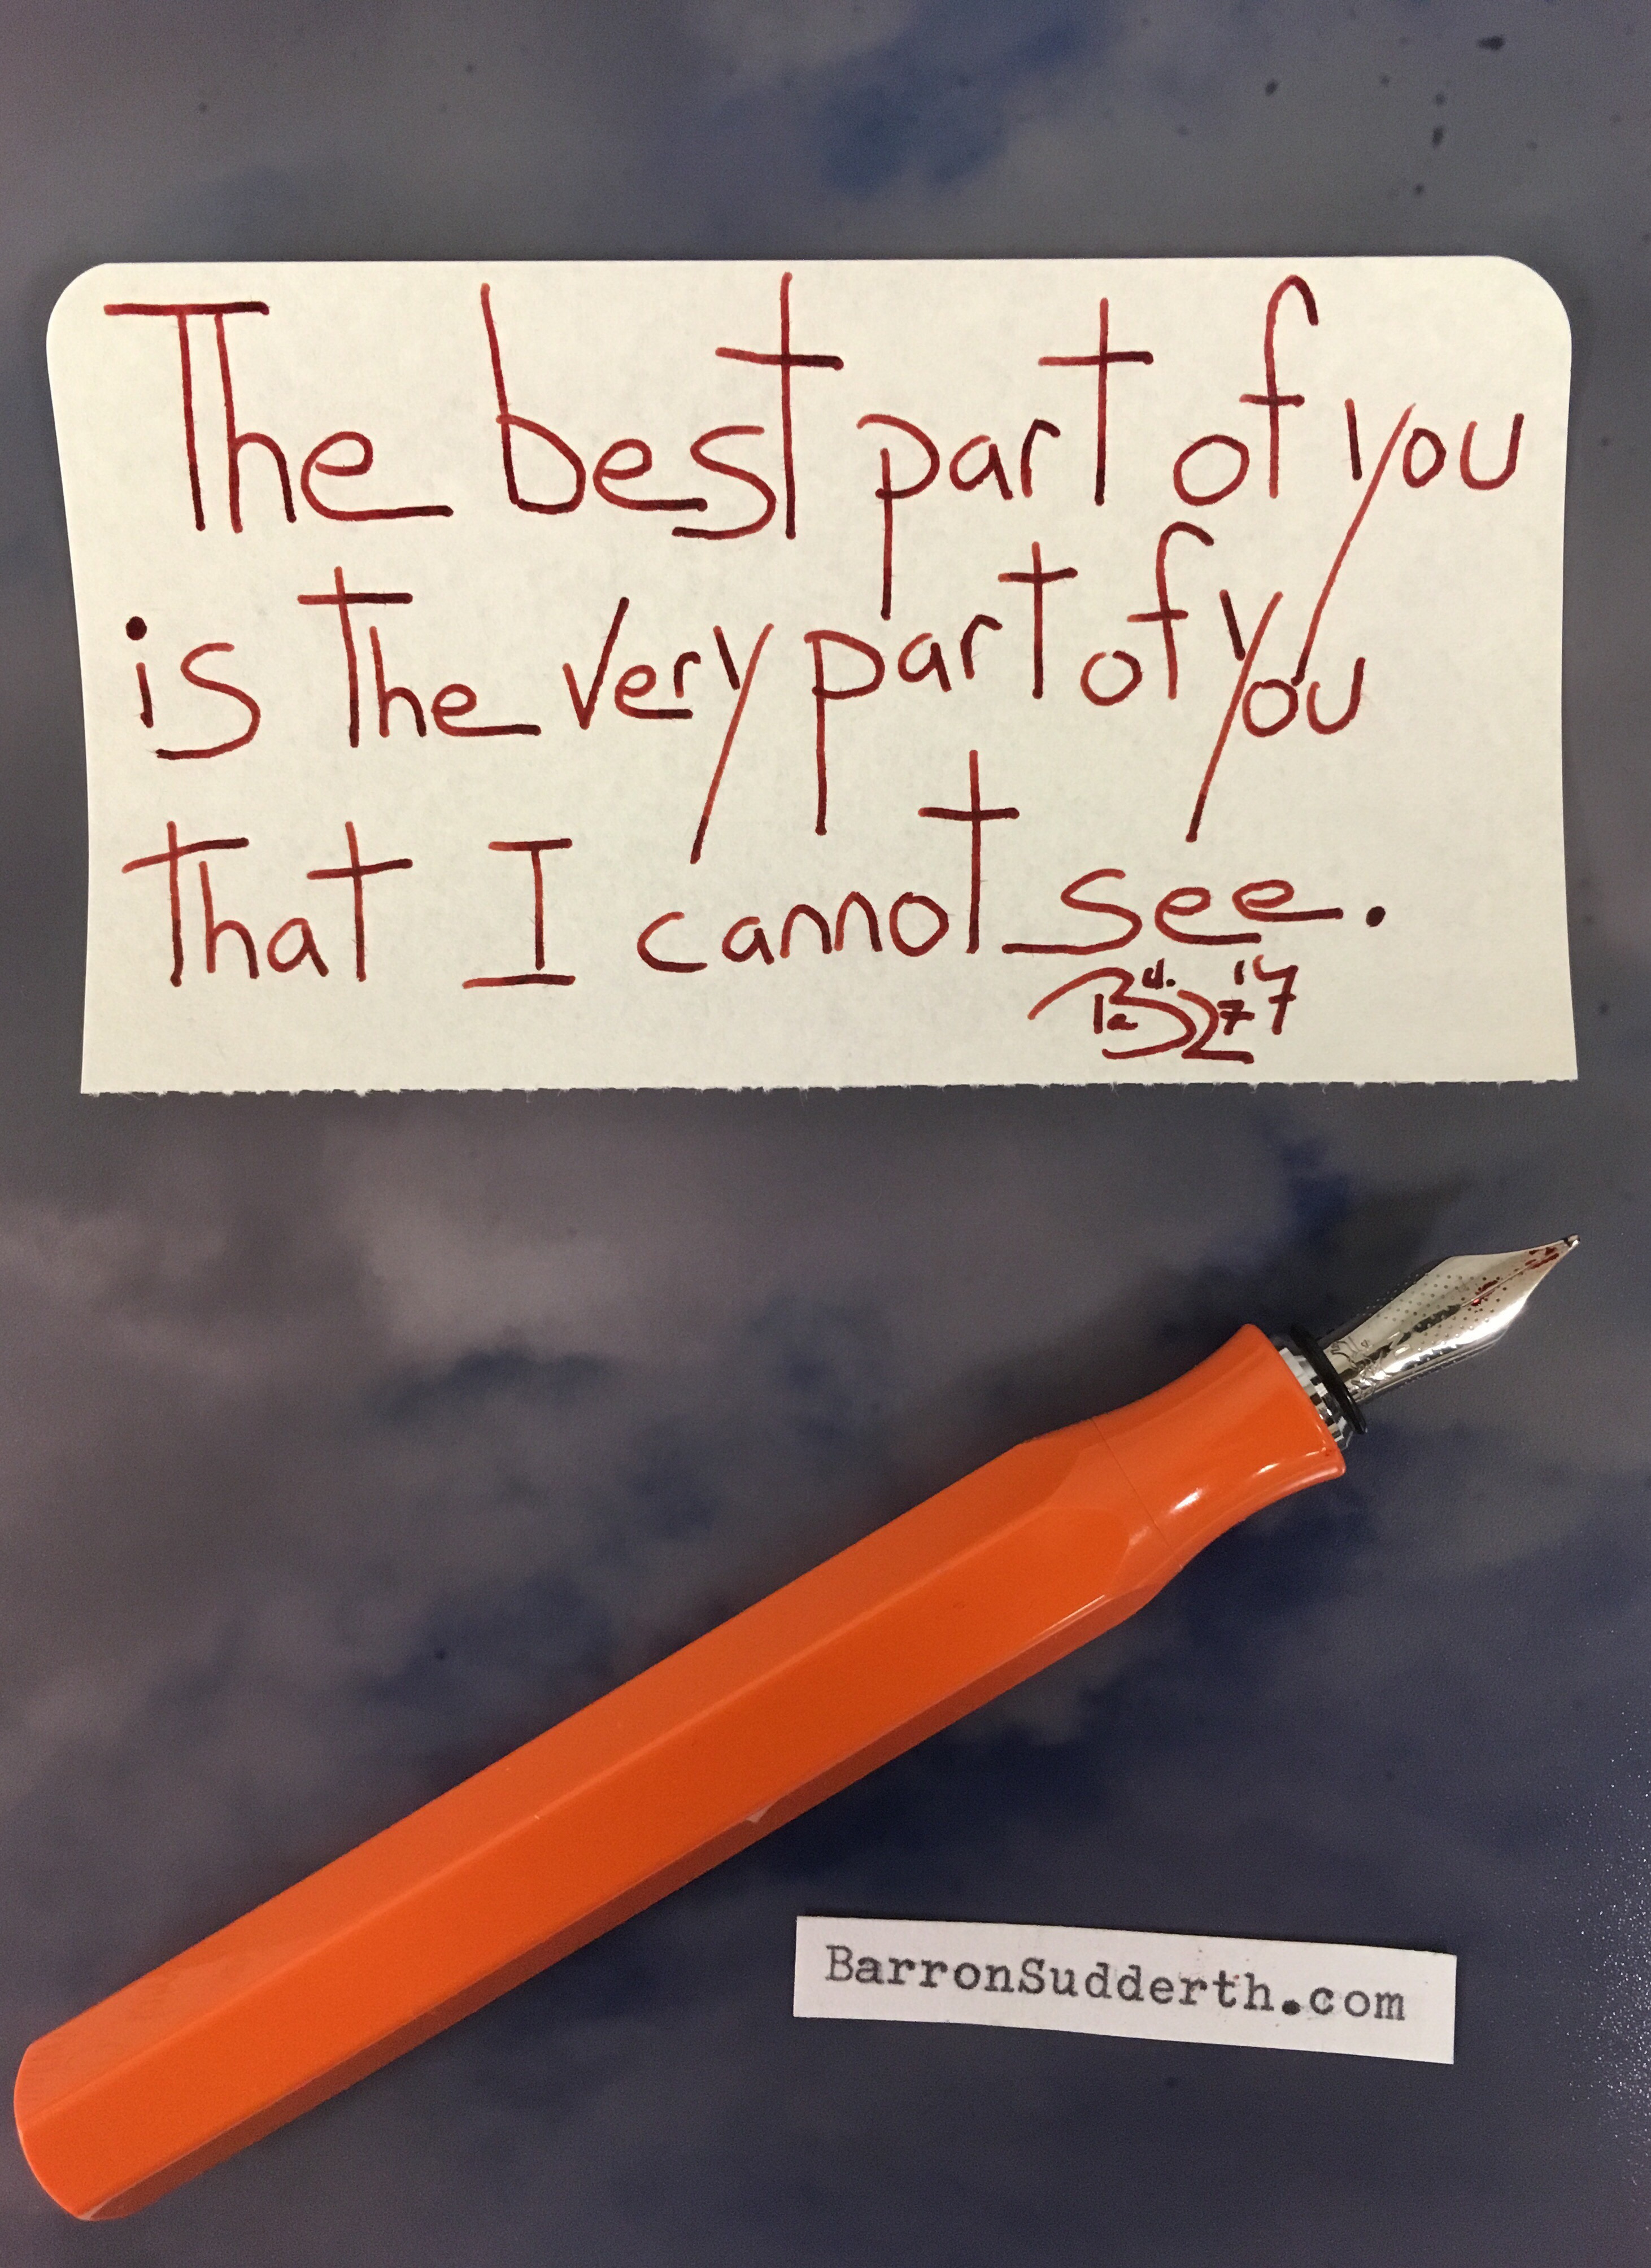 The best part of you
is the very part of you
that I cannot see.
BarronSudderth.com